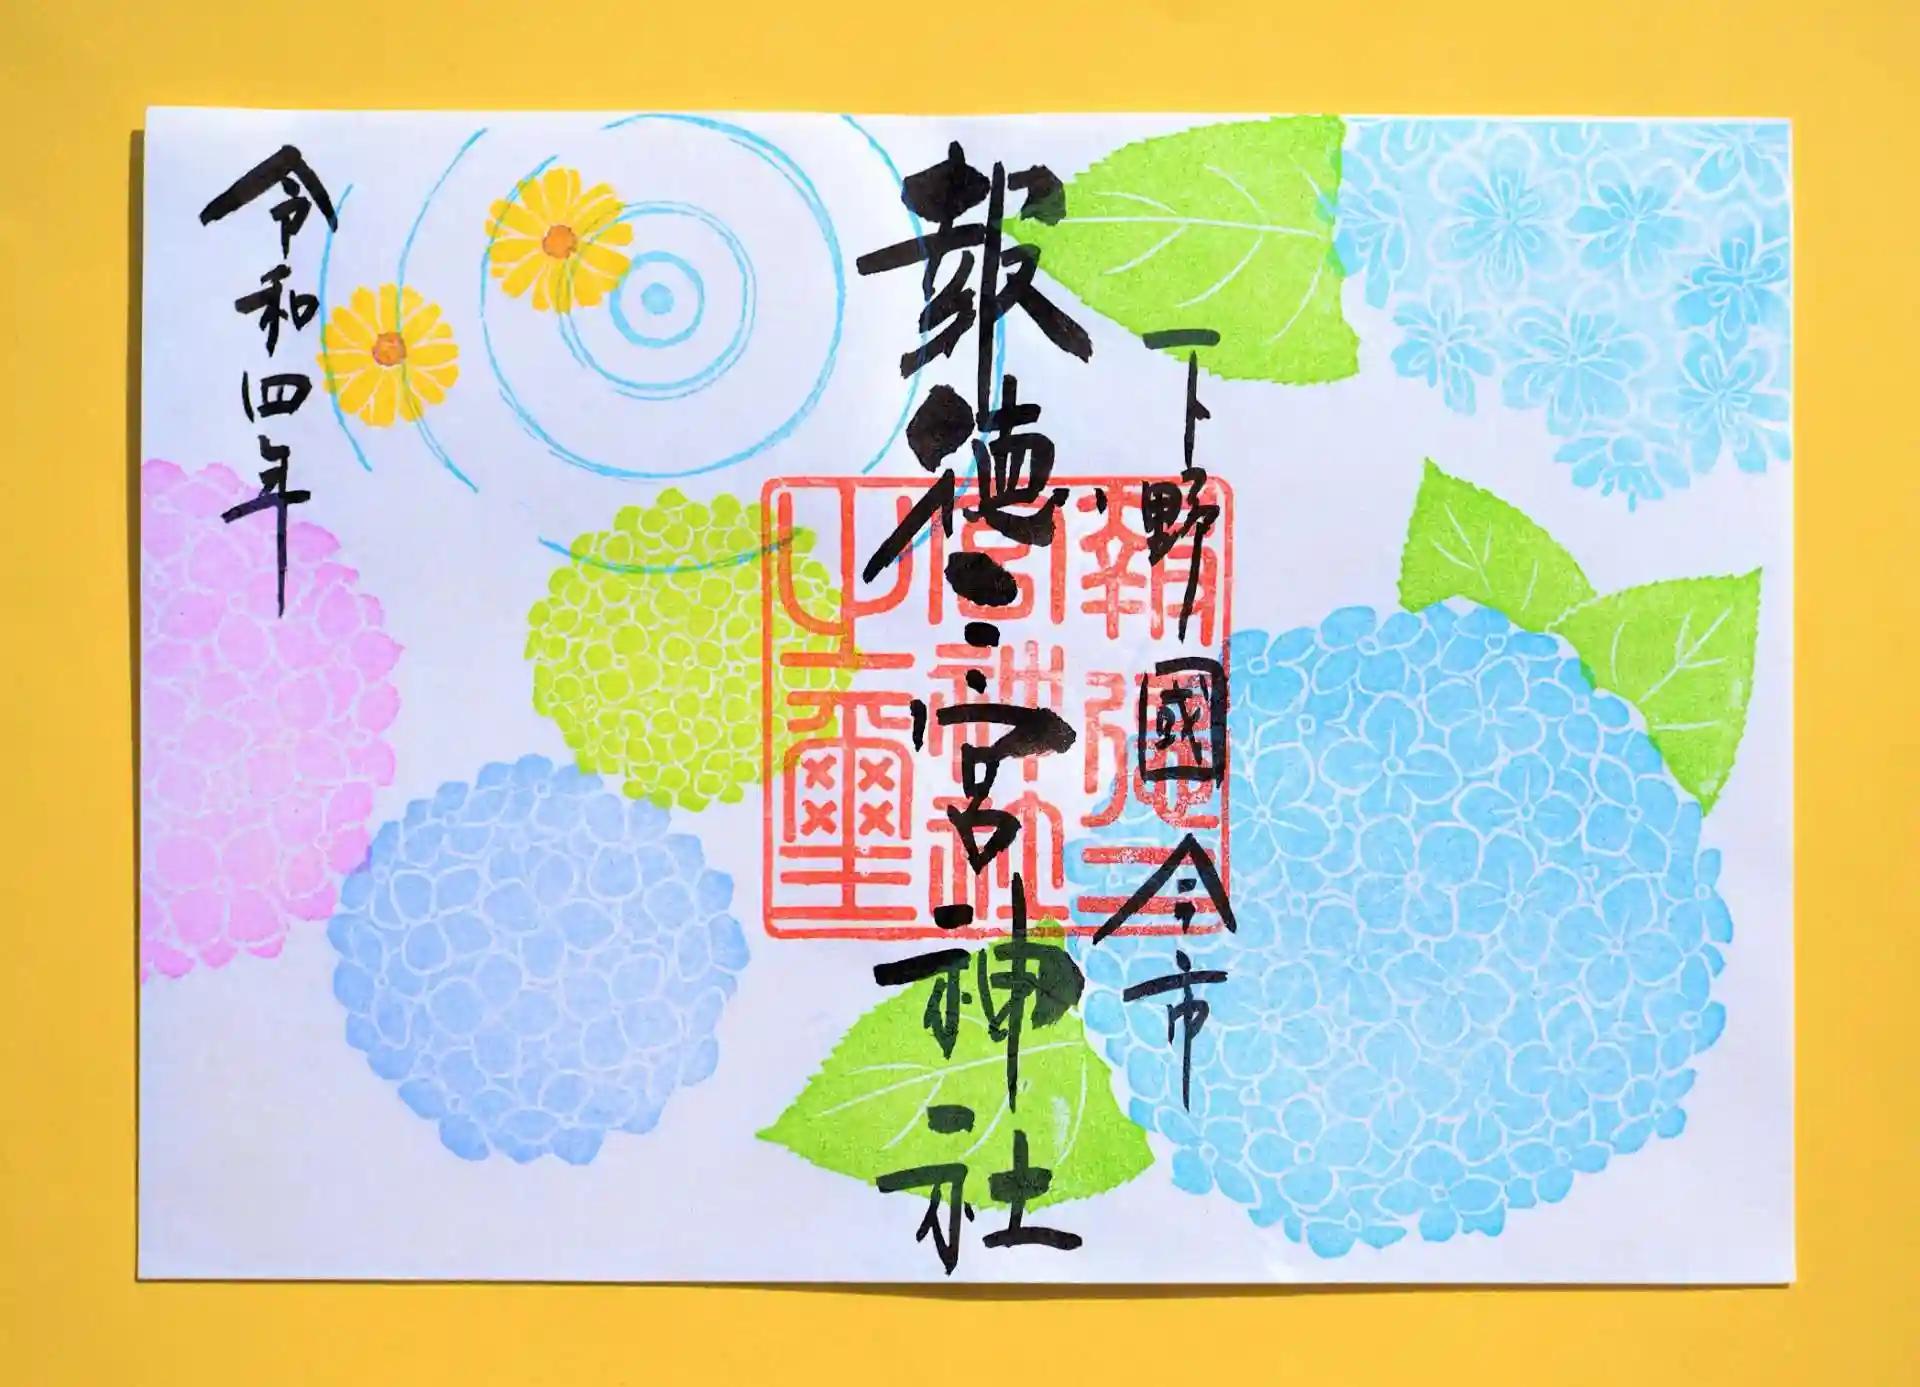 下野國今市
報徳二宮神社
令和四年
報徳二
宮神社
之璽